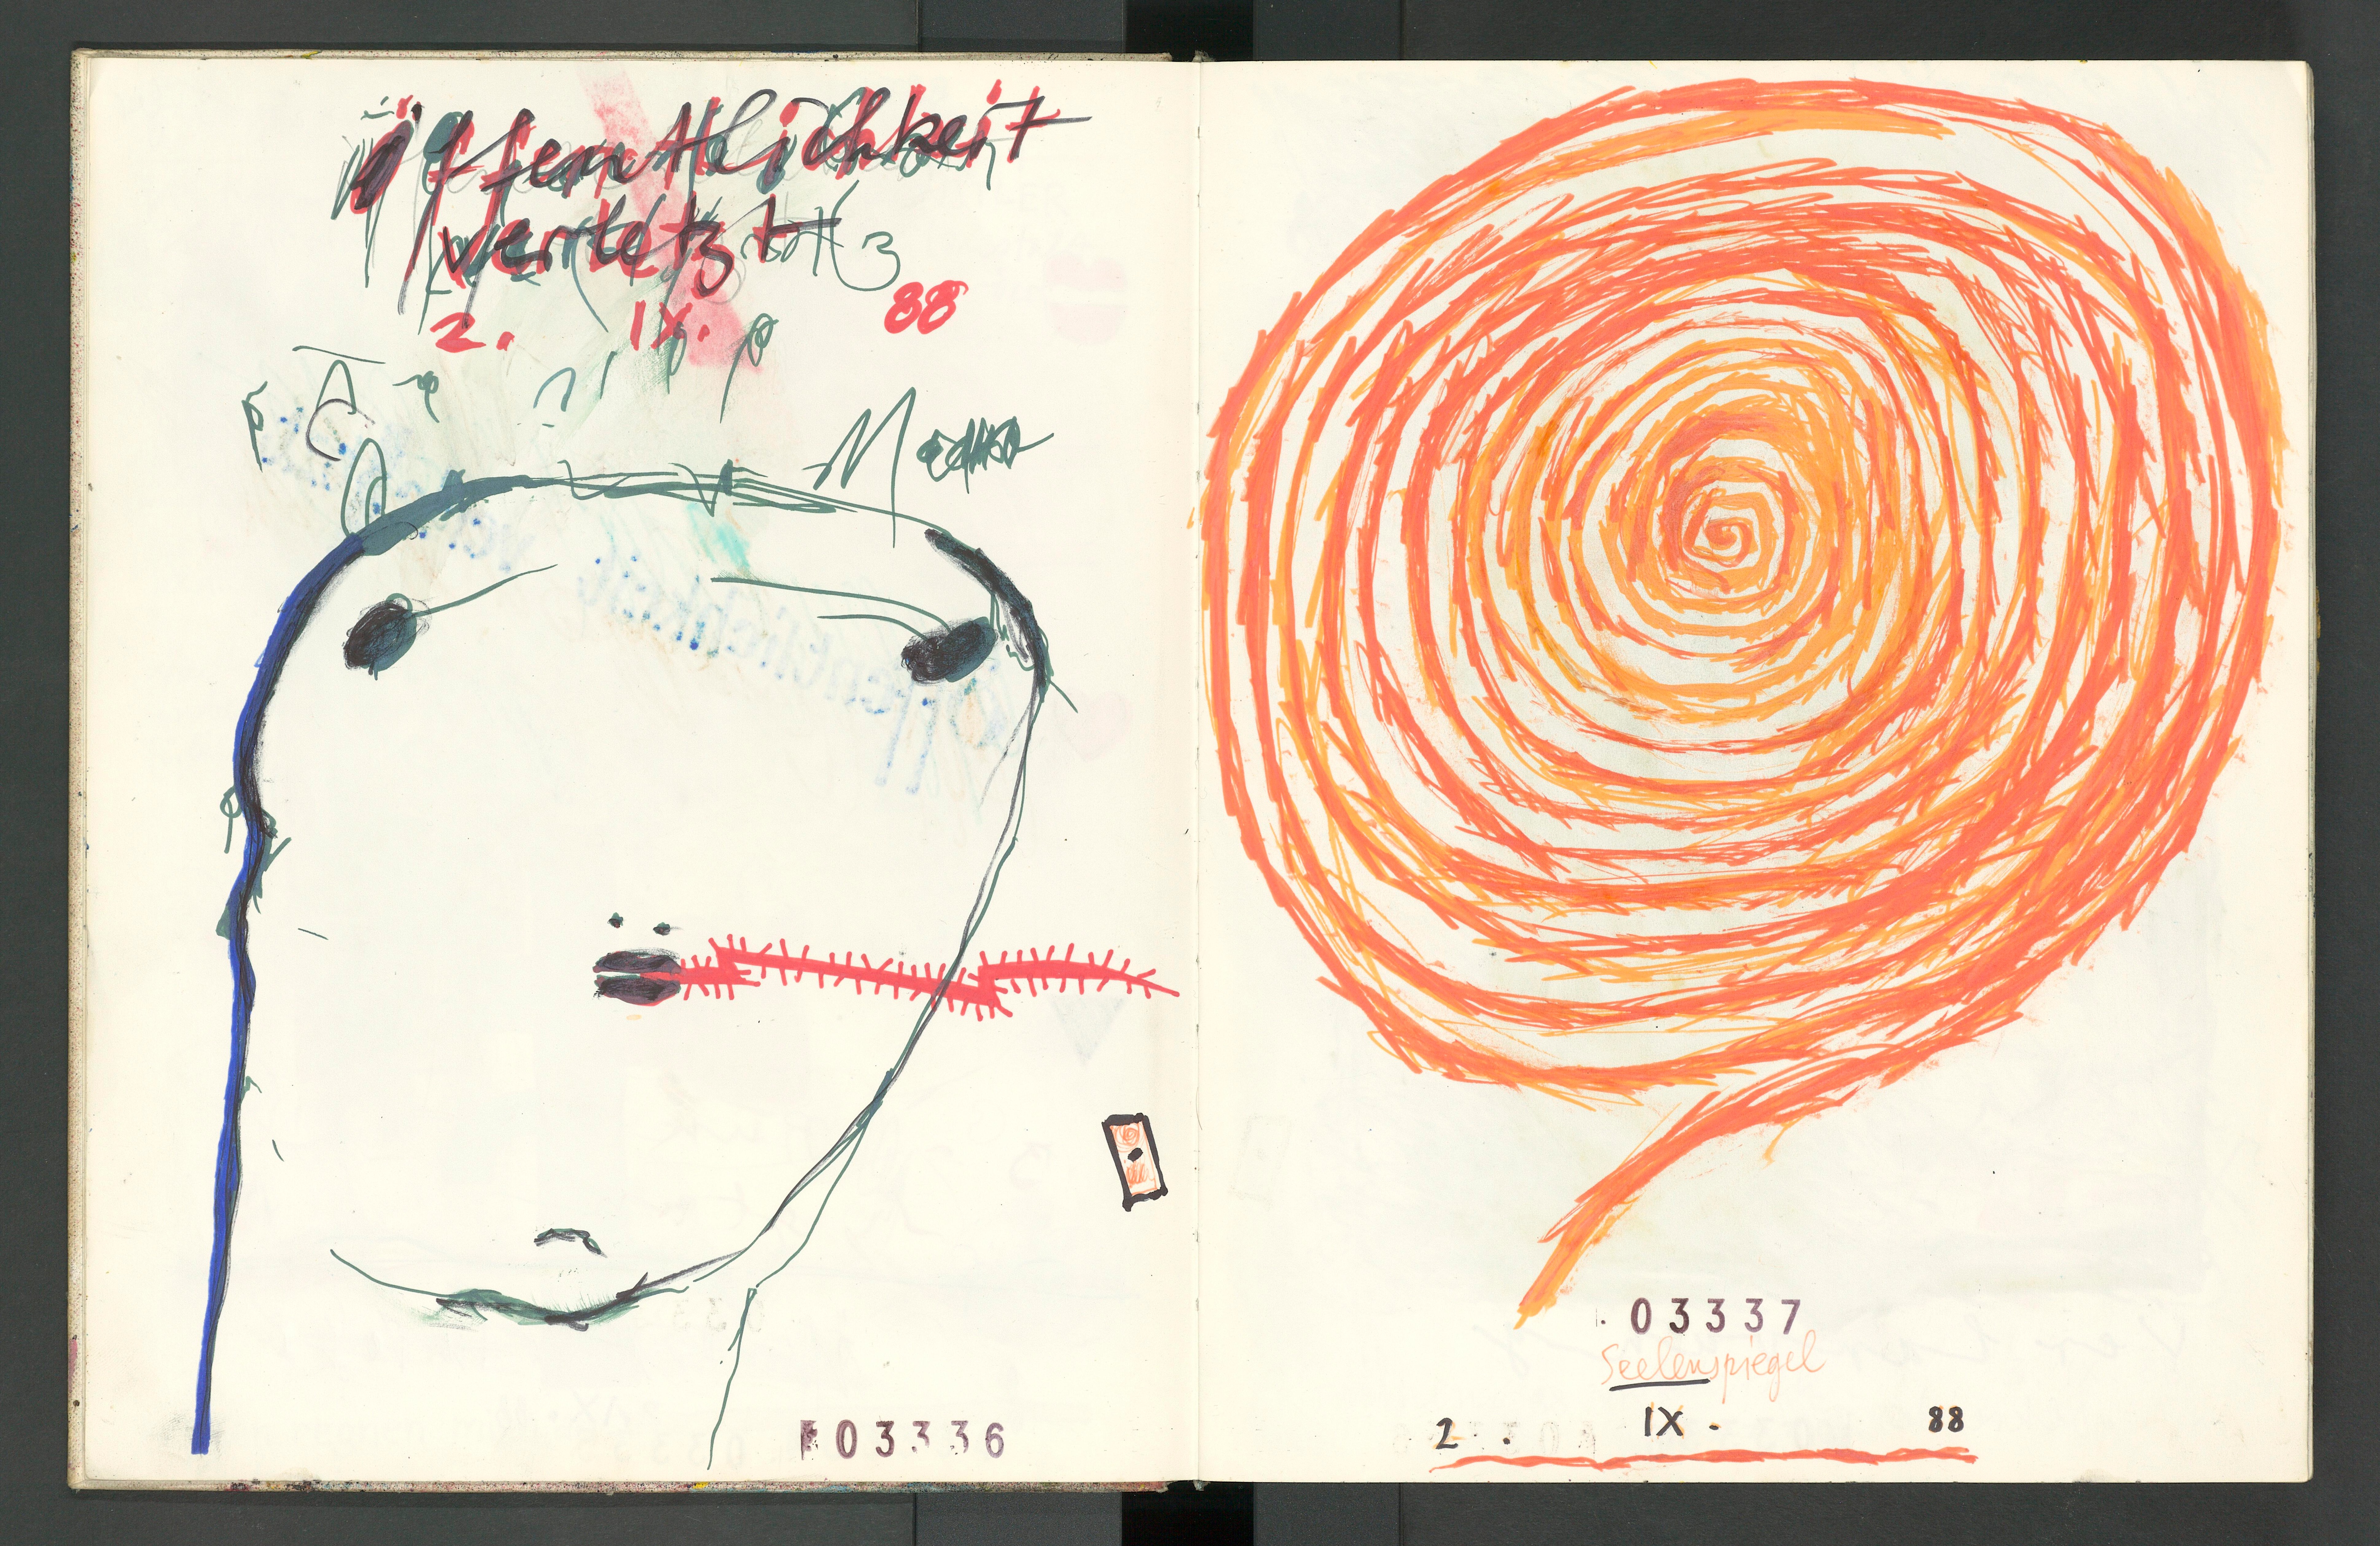 öffentlichkeit
verletzt
2. IX. 88
03336
03337
Seelenspiegel
2. IX. 88